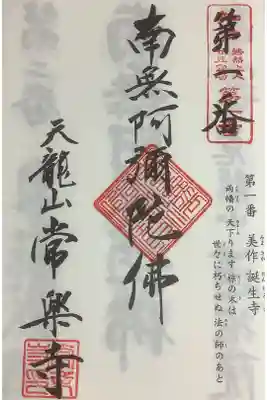 第一番
南無阿彌陀佛
天龍山常樂寺
第一番 美作 誕生寺
両幡の 天下ります 椋の木は
世々に朽ちせぬ 法の師のあと